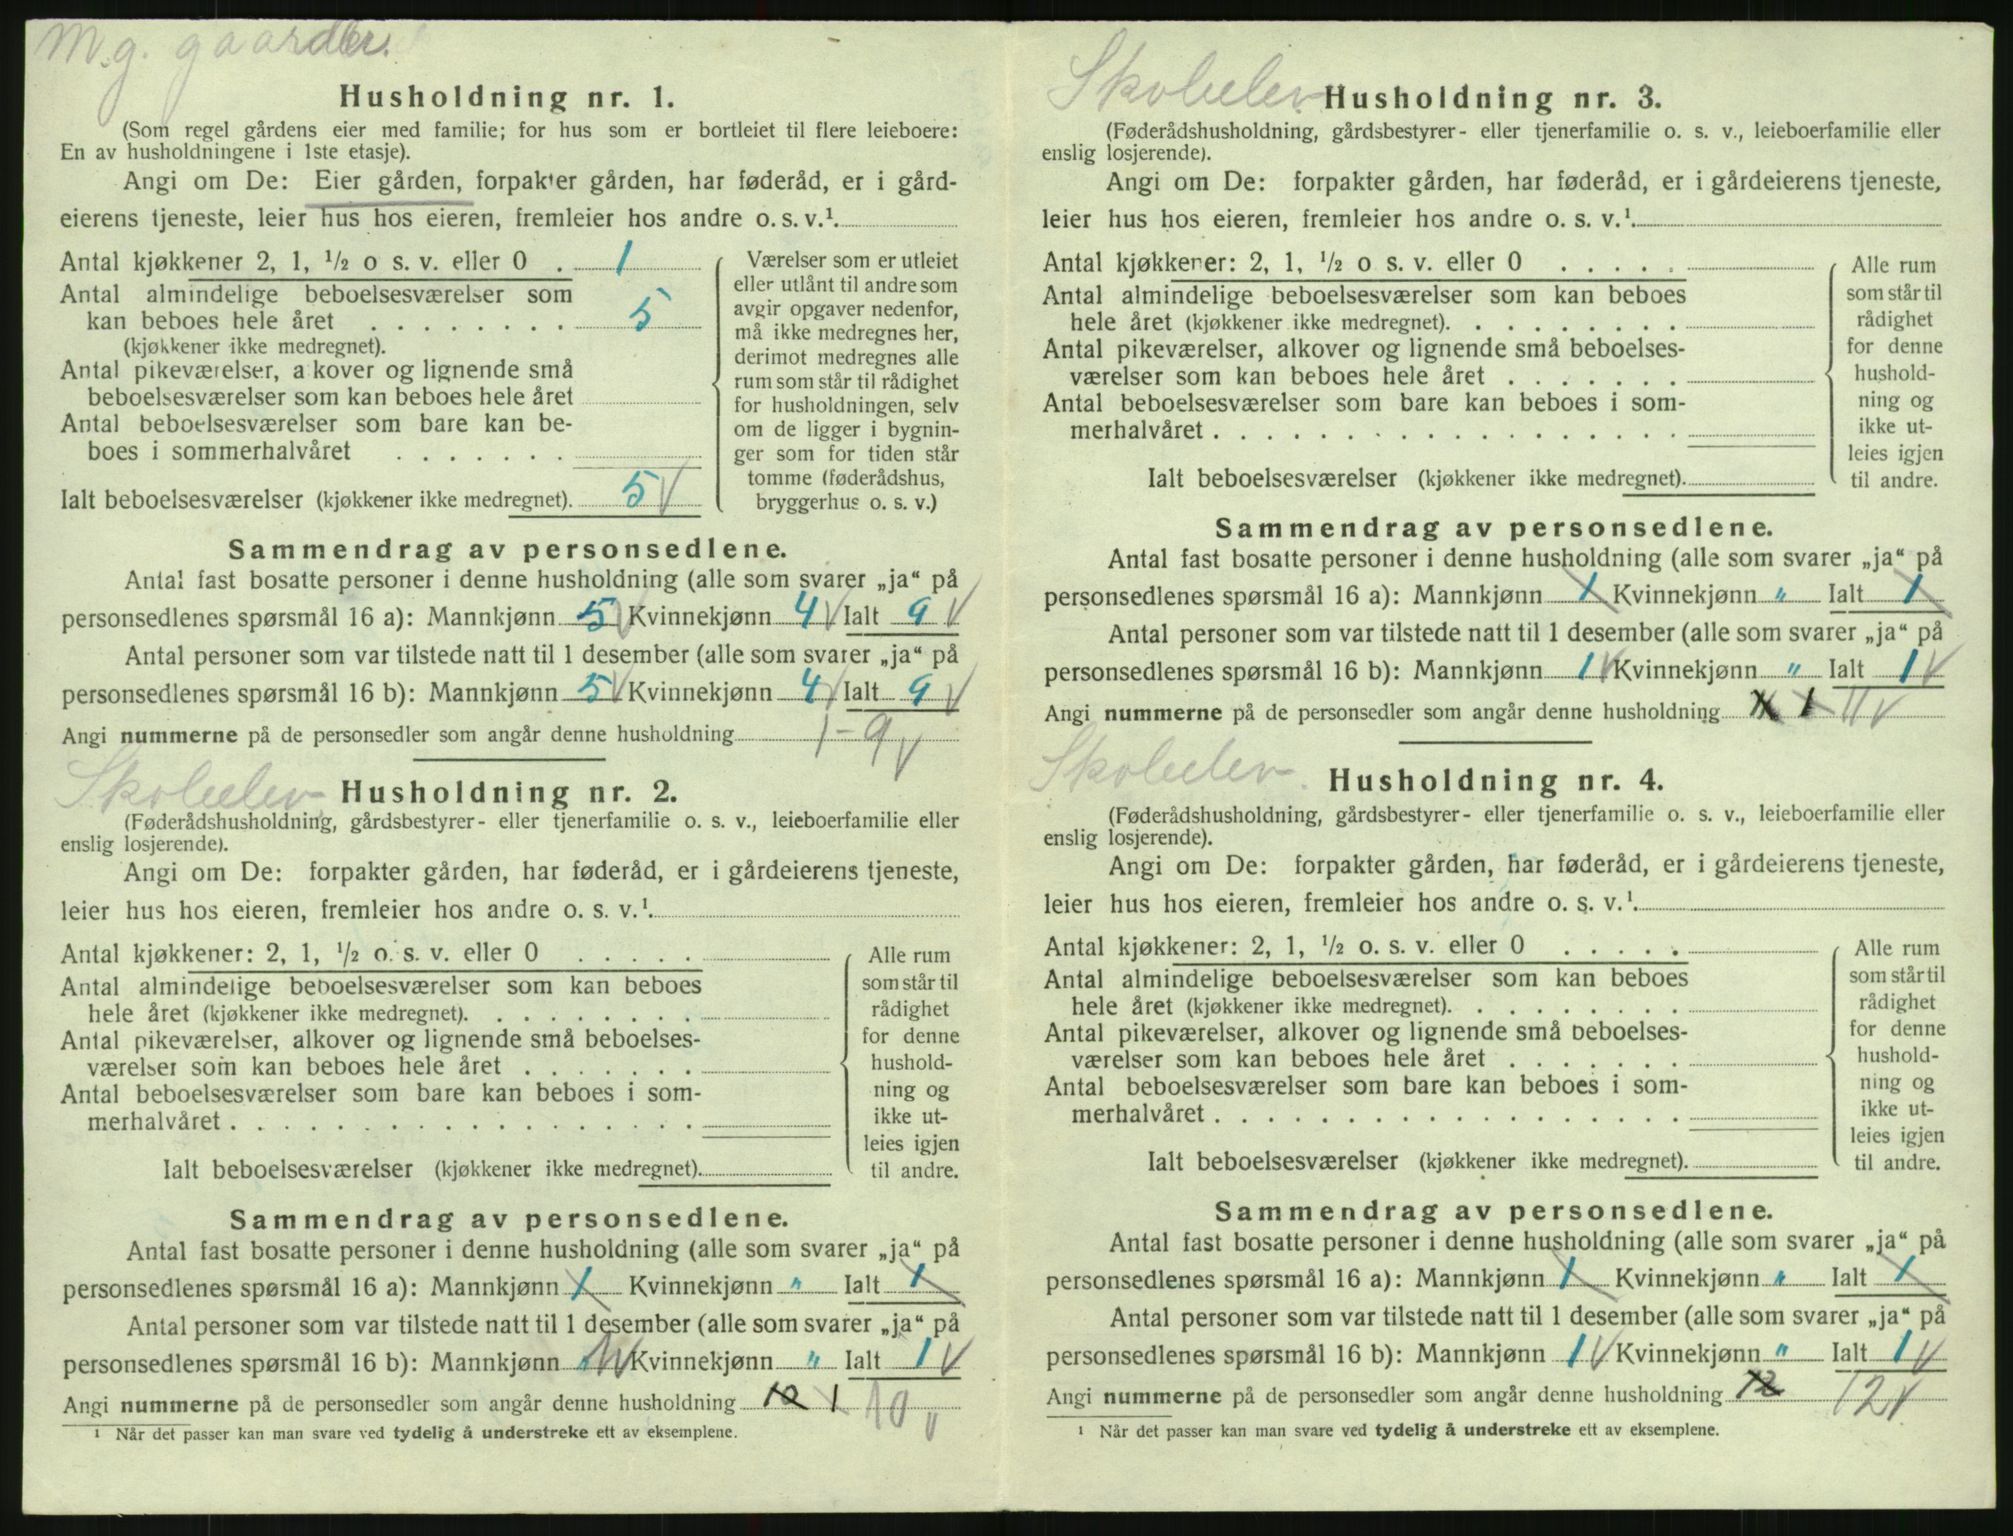 M.g. gaardbr.
Husholdning nr. 1.
(Som regel gårdens eier med familie; for hus som er bortleiet til flere leieboere:
En av husholdningene i 1ste etasje).
Angi om De: Eier gården, forpakter gården, har føderåd, er i gård-
eierens tjeneste, leier hus hos eieren, fremleier hos andre o. s. v.¹.
Antal kjøkkener 2, 1, ½ o s. v. eller 0 . 1
Antal almindelige beboelsesværelser som
kan beboes hele året . . . . . . . . 5
(kjøkkener ikke medregnet).
Antal pikeværelser, alkover og lignende små
beboelsesværelser som kan beboes hele året
Antal beboelsesværelser som bare kan be-
boes i sommerhalvåret . . . . . . .
Ialt beboelsesværelser (kjøkkener ikke medregnet). 5 V
Værelser som er utleiet
eller utlånt til andre som
avgir opgaver nedenfor,
må ikke medregnes her,
derimot medregnes alle
rum som står til rådighet
for husholdningen, selv
om de ligger i bygnin-
ger som for tiden står
tomme (føderådshus,
bryggerhus o. s. v.)
Sammendrag av personsedlene.
Antal fast bosatte personer i denne husholdning (alle som svarer „ja“ på
personsedlenes spørsmål 16 a): Mannkjønn 5 V Kvinnekjønn 4 V Ialt 9 V
Antal personer som var tilstede natt til 1 desember (alle som svarer „ja“ på
personsedlenes spørsmål 16 b): Mannkjønn 5 V Kvinnekjønn 4 V Ialt 9 V
Angi nummerne på de personsedler som angår denne husholdning 1-9 V
Skoleelev
Husholdning nr. 2.
(Føderådshusholdning, gårdsbestyrer- eller tjenerfamilie o. s. v., leieboerfamilie eller
enslig losjerende).
Angi om De: forpakter gården, har føderåd, er i gårdeierens tjeneste,
leier hus hos eieren, fremleier hos andre o. s. v.¹.
Antal kjøkkener: 2, 1, ½ o. s. v. eller 0 . . . . .
Antal almindelige beboelsesværelser som kan beboes
hele året (kjøkkener ikke medregnet). . . . . . . . .
Antal pikeværelser, alkover og lignende små beboelses-
værelser som kan beboes hele året . . . . . . .
Antal beboelsesværelser som bare kan beboes i som-
merhalvåret . . . . . . . . . . . . . . . . . .
Ialt beboelsesværelser (kjøkkener ikke medregnet).
Alle rum
som står til
rådighet
for denne
hushold-
ning og
ikke ut-
leies igjen
til andre.
Sammendrag av personsedlene.
Antal fast bosatte personer i denne husholdning (alle som svarer „ja“ på
personsedlenes spørsmål 16 a): Mannkjønn 1 Kvinnekjønn " Ialt 1
Antal personer som var tilstede natt til 1 desember (alle som svarer „ja“ på
personsedlenes spørsmål 16 b): Mannkjønn 1 V Kvinnekjønn " Ialt 1 V
Angi nummerne på de personsedler som angår denne husholdning 10 1 10 V
¹ Når det passer kan man svare ved tydelig å understreke ett av eksemplene.
Skoleelev
Husholdning nr. 3.
(Føderådshusholdning, gårdsbestyrer- eller tjenerfamilie o. s. v., leieboerfamilie eller
enslig losjerende).
Angi om De: forpakter gården, har føderåd, er i gårdeierens tjeneste,
leier hus hos eieren, fremleier hos andre o. s. v.¹.
Antal kjøkkener: 2, 1, ½ o s. v. eller 0 . . . . .
Antal almindelige beboelsesværelser som kan beboes
hele året (kjøkkener ikke medregnet). . . . . . . . .
Antal pikeværelser, alkover og lignende små beboelses-
værelser som kan beboes hele året . . . . . . .
Antal beboelsesværelser som bare kan beboes i som-
merhalvåret . . . . . . . . . . . . . . . . . .
Ialt beboelsesværelser (kjøkkener ikke medregnet).
Alle rum
som står til
rådighet
for denne
hushold-
ning og
ikke ut-
leies igjen
til andre.
Sammendrag av personsedlene.
Antal fast bosatte personer i denne husholdning (alle som svarer „ja“ på
personsedlenes spørsmål 16 a): Mannkjønn 1 Kvinnekjønn " Ialt 1
Antal personer som var tilstede natt til 1 desember (alle som svarer „ja“ på
personsedlenes spørsmål 16 b): Mannkjønn 1 V Kvinnekjønn " Ialt 1 V
Angi nummerne på de personsedler som angår denne husholdning 1 11 V
Skoleelev
Husholdning nr. 4.
(Føderådshusholdning, gårdsbestyrer- eller tjenerfamilie o. s. v., leieboerfamilie eller
enslig losjerende).
Angi om De: forpakter gården, har føderåd, er i gårdeierens tjeneste,
leier hus hos eieren, fremleier hos andre o. s. v.¹.
Antal kjøkkener: 2, 1, ½ o. s. v. eller 0 . . . . .
Antal almindelige beboelsesværelser som kan beboes
hele året (kjøkkener ikke medregnet). . . . . . . . .
Antal pikeværelser, alkover og lignende små beboelses-
værelser som kan beboes hele året . . . . . . .
Antal beboelsesværelser som bare kan beboes i som-
merhalvåret . . . . . . . . . . . . . . . . . .
Ialt beboelsesværelser (kjøkkener ikke medregnet).
Alle rum
som står til
rådighet
for denne
hushold-
ning og
ikke ut-
leies igjen
til andre.
Sammendrag av personsedlene.
Antal fast bosatte personer i denne husholdning (alle som svarer „ja“ på
personsedlenes spørsmål 16 a): Mannkjønn 1 Kvinnekjønn " Ialt 1
Antal personer som var tilstede natt til 1 desember (alle som svarer „ja“ på
personsedlenes spørsmål 16 b): Mannkjønn 1 V Kvinnekjønn " Ialt 1 V
Angi nummerne på de personsedler som angår denne husholdning 12 12 V
¹ Når det passer kan man svare ved tydelig å understreke ett av eksemplene.